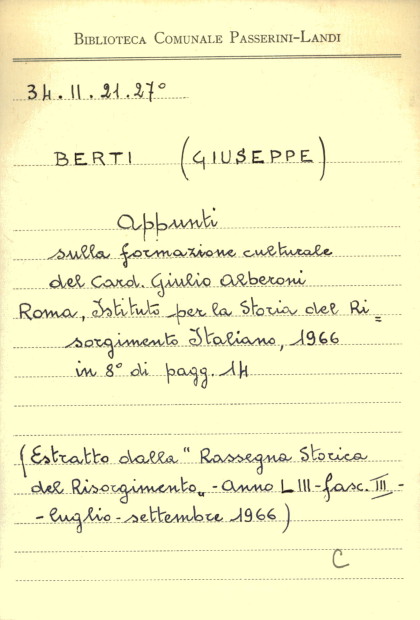 BIBLIOTECA COMUNALE PASSERINI-LANDI
34.II.21.27°
BERTI (GIUSEPPE)
Appunti
sulla formazione culturale
del Card. Giulio Alberoni
Roma, Istituto per la Storia del Ri=
sorgimento Italiano, 1966
in 8° di pagg. 14
(Estratto dalla "Rassegna Storica
del Risorgimento„ - Anno LIII - fasc. III -
- luglio - settembre 1966)
C